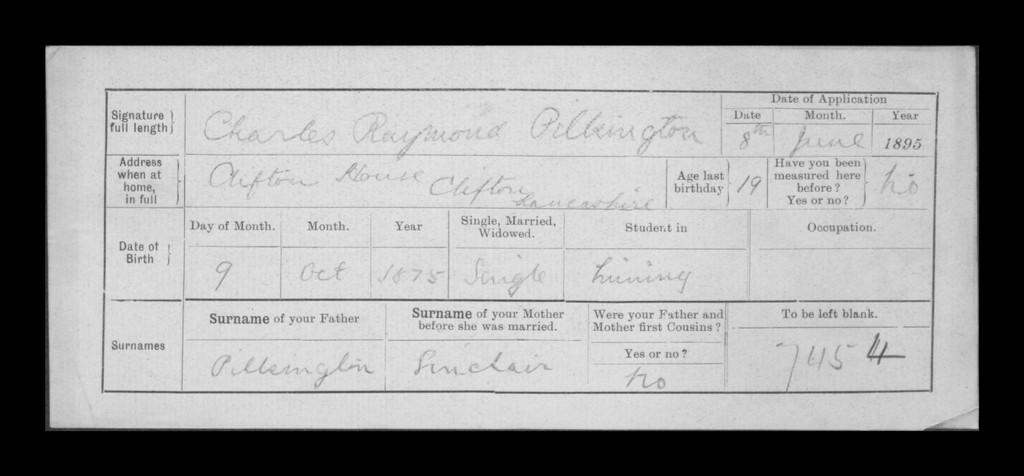 Signature full length} Charles Raymond Pilkington
Date of Application
Date Month. Year
8th June 1895
Address when at home, in full} Clifton House Clifton
Lancashire
Age last birthday} 19
Have you been measured here before? Yes or no?} No
Date of Birth}
Day of Month. Month. Year Single, Married, Widowed. Student in Occupation.
9 Oct 1875 Single Mining
Surnames
Surname of your Father Surname of your Mother before she was married. Were your Father and Mother first Cousins? To be left blank.
Yes or no?
Pilkington Sinclair No 7454